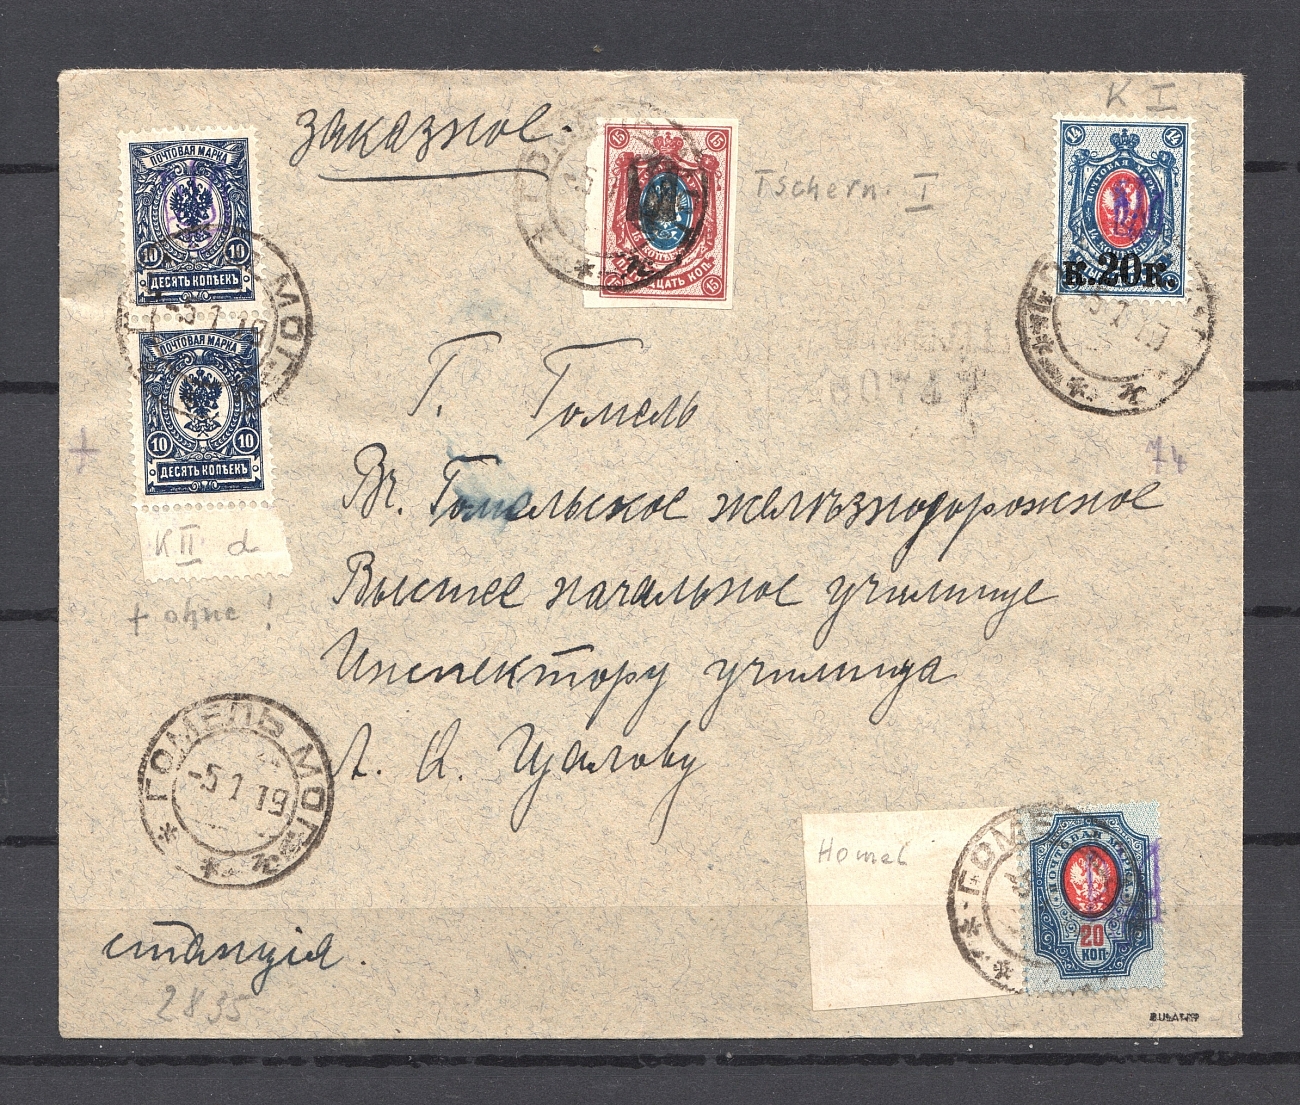 K I
заказное.
Tschern. I
ПОЧТОВАЯ МАРКА
10 10
ДЕСЯТЬ КОПѢЕКЪ
ПОЧТОВАЯ МАРКА
10 10
ДЕСЯТЬ КОПѢЕКЪ
15 15
15 КОП.
ПЯТНАДЦАТЬ КОП.
15 15
14 14
ПОЧТОВАЯ МАРКА
14 КОПѢЕКЪ
к.20к.
5 1 19
Г. Гомель
Въ Гомельское желѣзнодорожное
Высшее начальное училище
Инспектору училища
К II d
+ ohne !
14
ГОМЕЛЬ МОГ.
-5 1 19
Homel
ПОЧТОВАЯ МАРКА
20
КОП.
станція.
2835
BULATOW